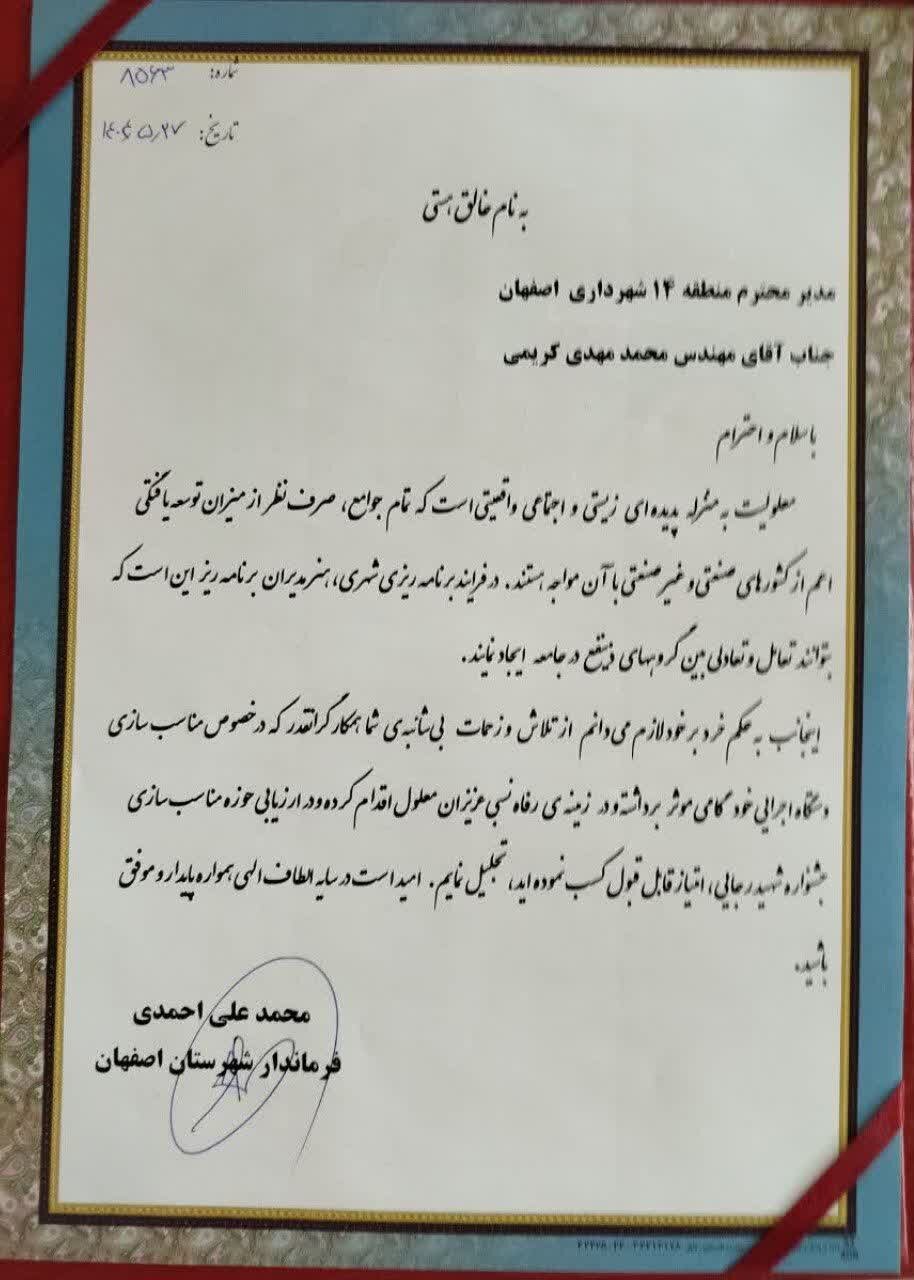 شماره: ۸۵۶۳
تاریخ: ۱۴۰۴،۵،۲۷
به نام خالق هستی
مدیر محترم منطقه ۱۴ شهرداری اصفهان
جناب آقای مهندس محمد مهدی کریمی
با سلام و احترام
معلولیت به منزله پدیده ای زیستی و اجتماعی واقعیتی است که تمام جوامع، صرف نظر از میزان توسعه یافتگی
اعم از کشورهای صنعتی و غیر صنعتی با آن مواجه هستند. در فرایند برنامه ریزی شهری، هنر مدیران برنامه ریز این است که
بتوانند تعامل و تعادلی بین گروههای ذینفع در جامعه ایجاد نمایند.
اینجانب به حکم خرد بر خود لازم می دانم از تلاش و زحمات بی شائبه ی شما همکار گرانقدر که در خصوص مناسب سازی
دستگاه اجرایی خود گامی موثر برداشته و در زمینه ی رفاه نسبی عزیزان معلول اقدام کرده و در ارزیابی حوزه مناسب سازی
جشنواره شهید رجایی، امتیاز قابل قبول کسب نموده اید، تجلیل نمایم. امید است در سایه الطاف الهی همواره پایدار و موفق
باشید.
محمد علی احمدی
فرماندار شهرستان اصفهان